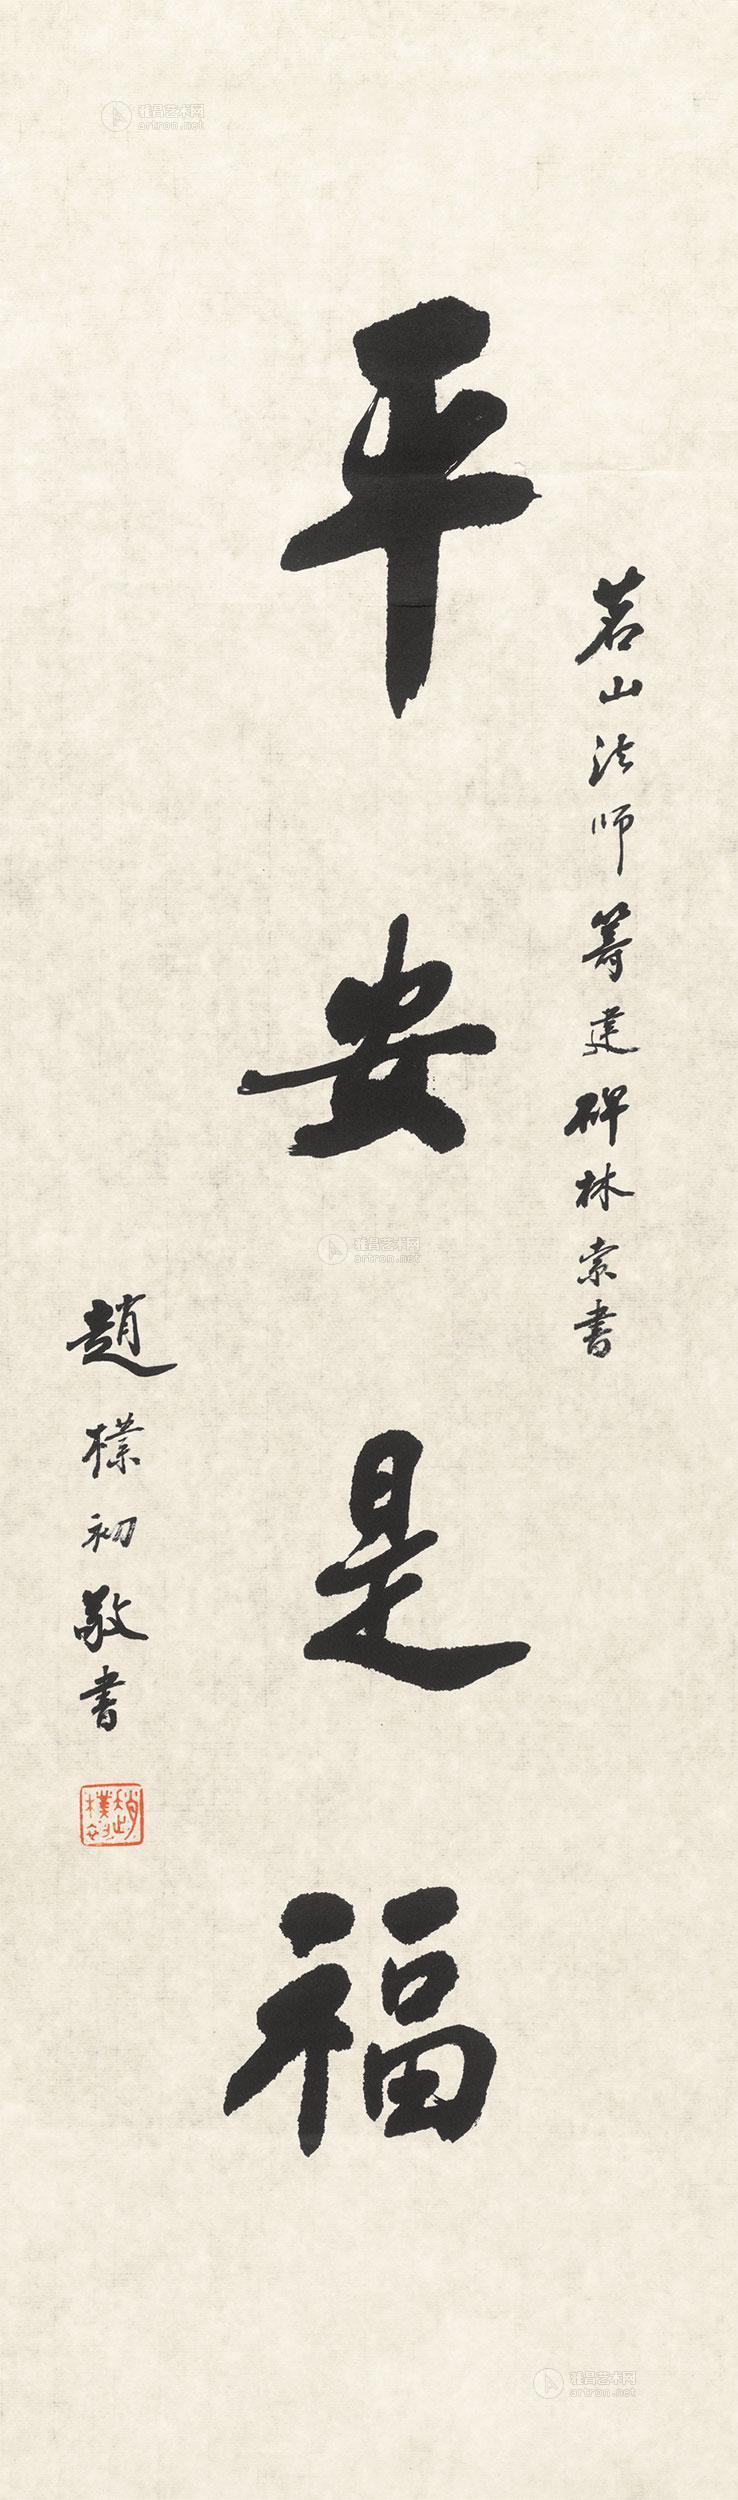 茗山法师筹建碑林索书
平安是福
趙樸初敬書
趙樸初
雅昌艺术网
artron.net
雅昌艺术网
artron.net
雅昌艺术网
artron.net